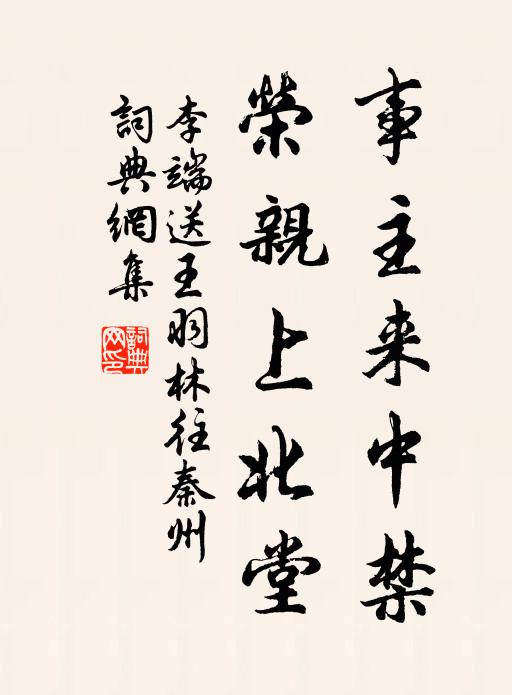 事主来中禁
榮親上北堂
李端送王羽林往秦州
詞典網集
詞典
网印